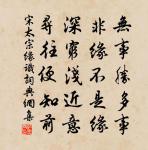 無事勝多事
非緣不是緣
深窮淺近意
尋往便知前
宋太宗緣識詞典網集